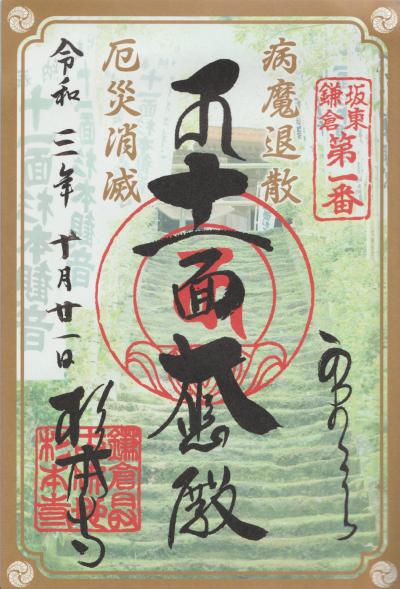 坂東
鎌倉
第一番
病魔退散
厄災消滅
十一面大悲殿
令和三年十月廿一日
杉本寺
十一面杉本観音